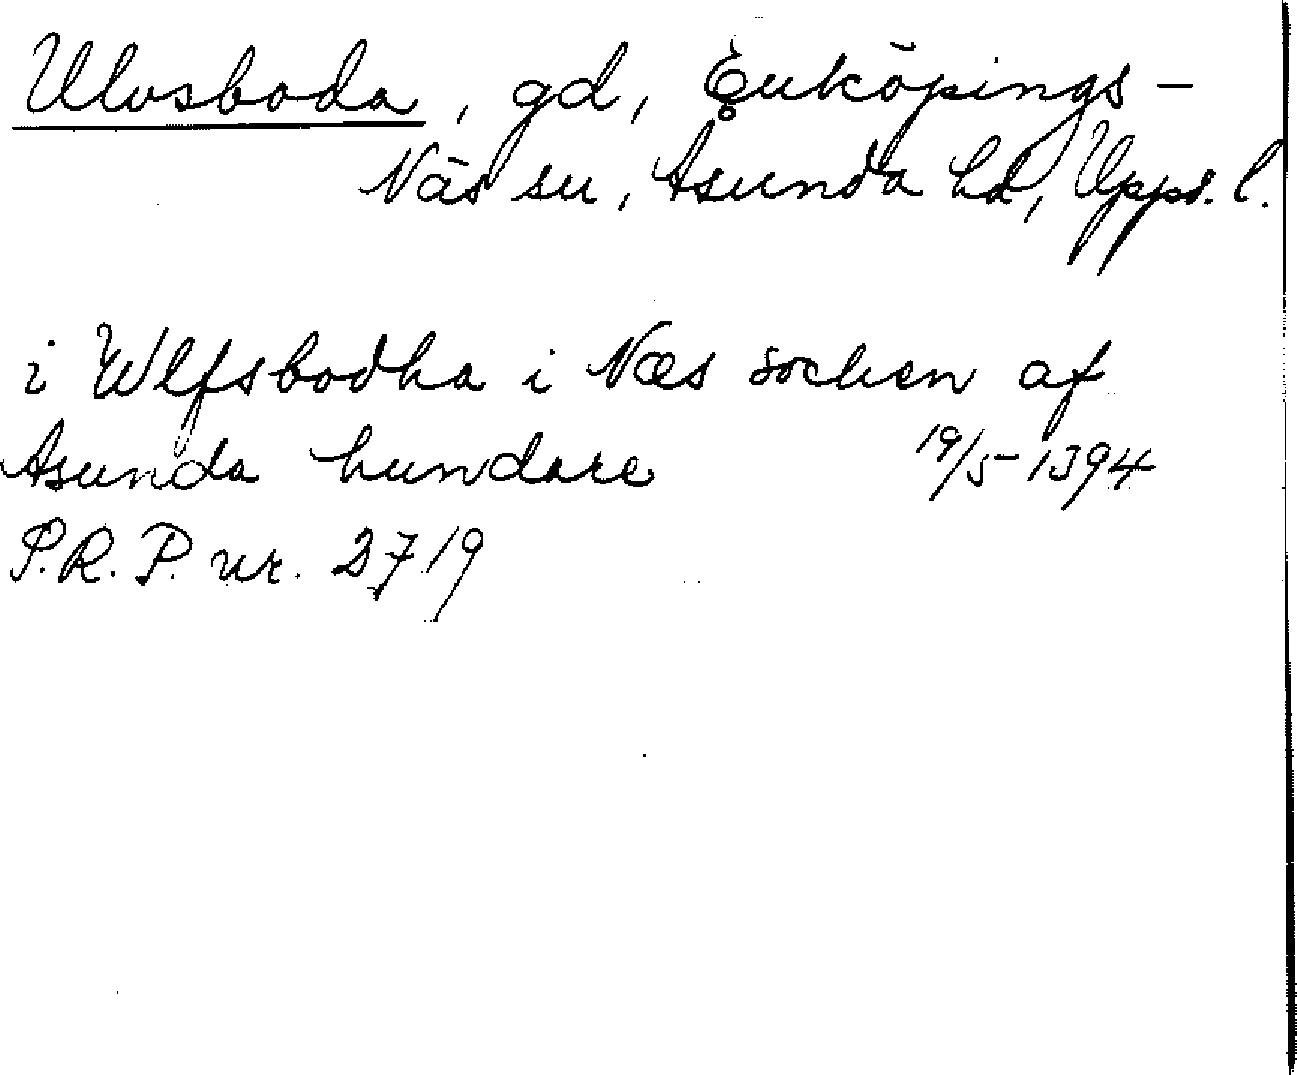 Ulvsboda, gd, Enköpings-
Näs sn, Åsunda hd, Upps. l.
i Wlfsbodha i Næs sochen af
Asunda hundare 19/5-1394
P.R.P. nr. 2719